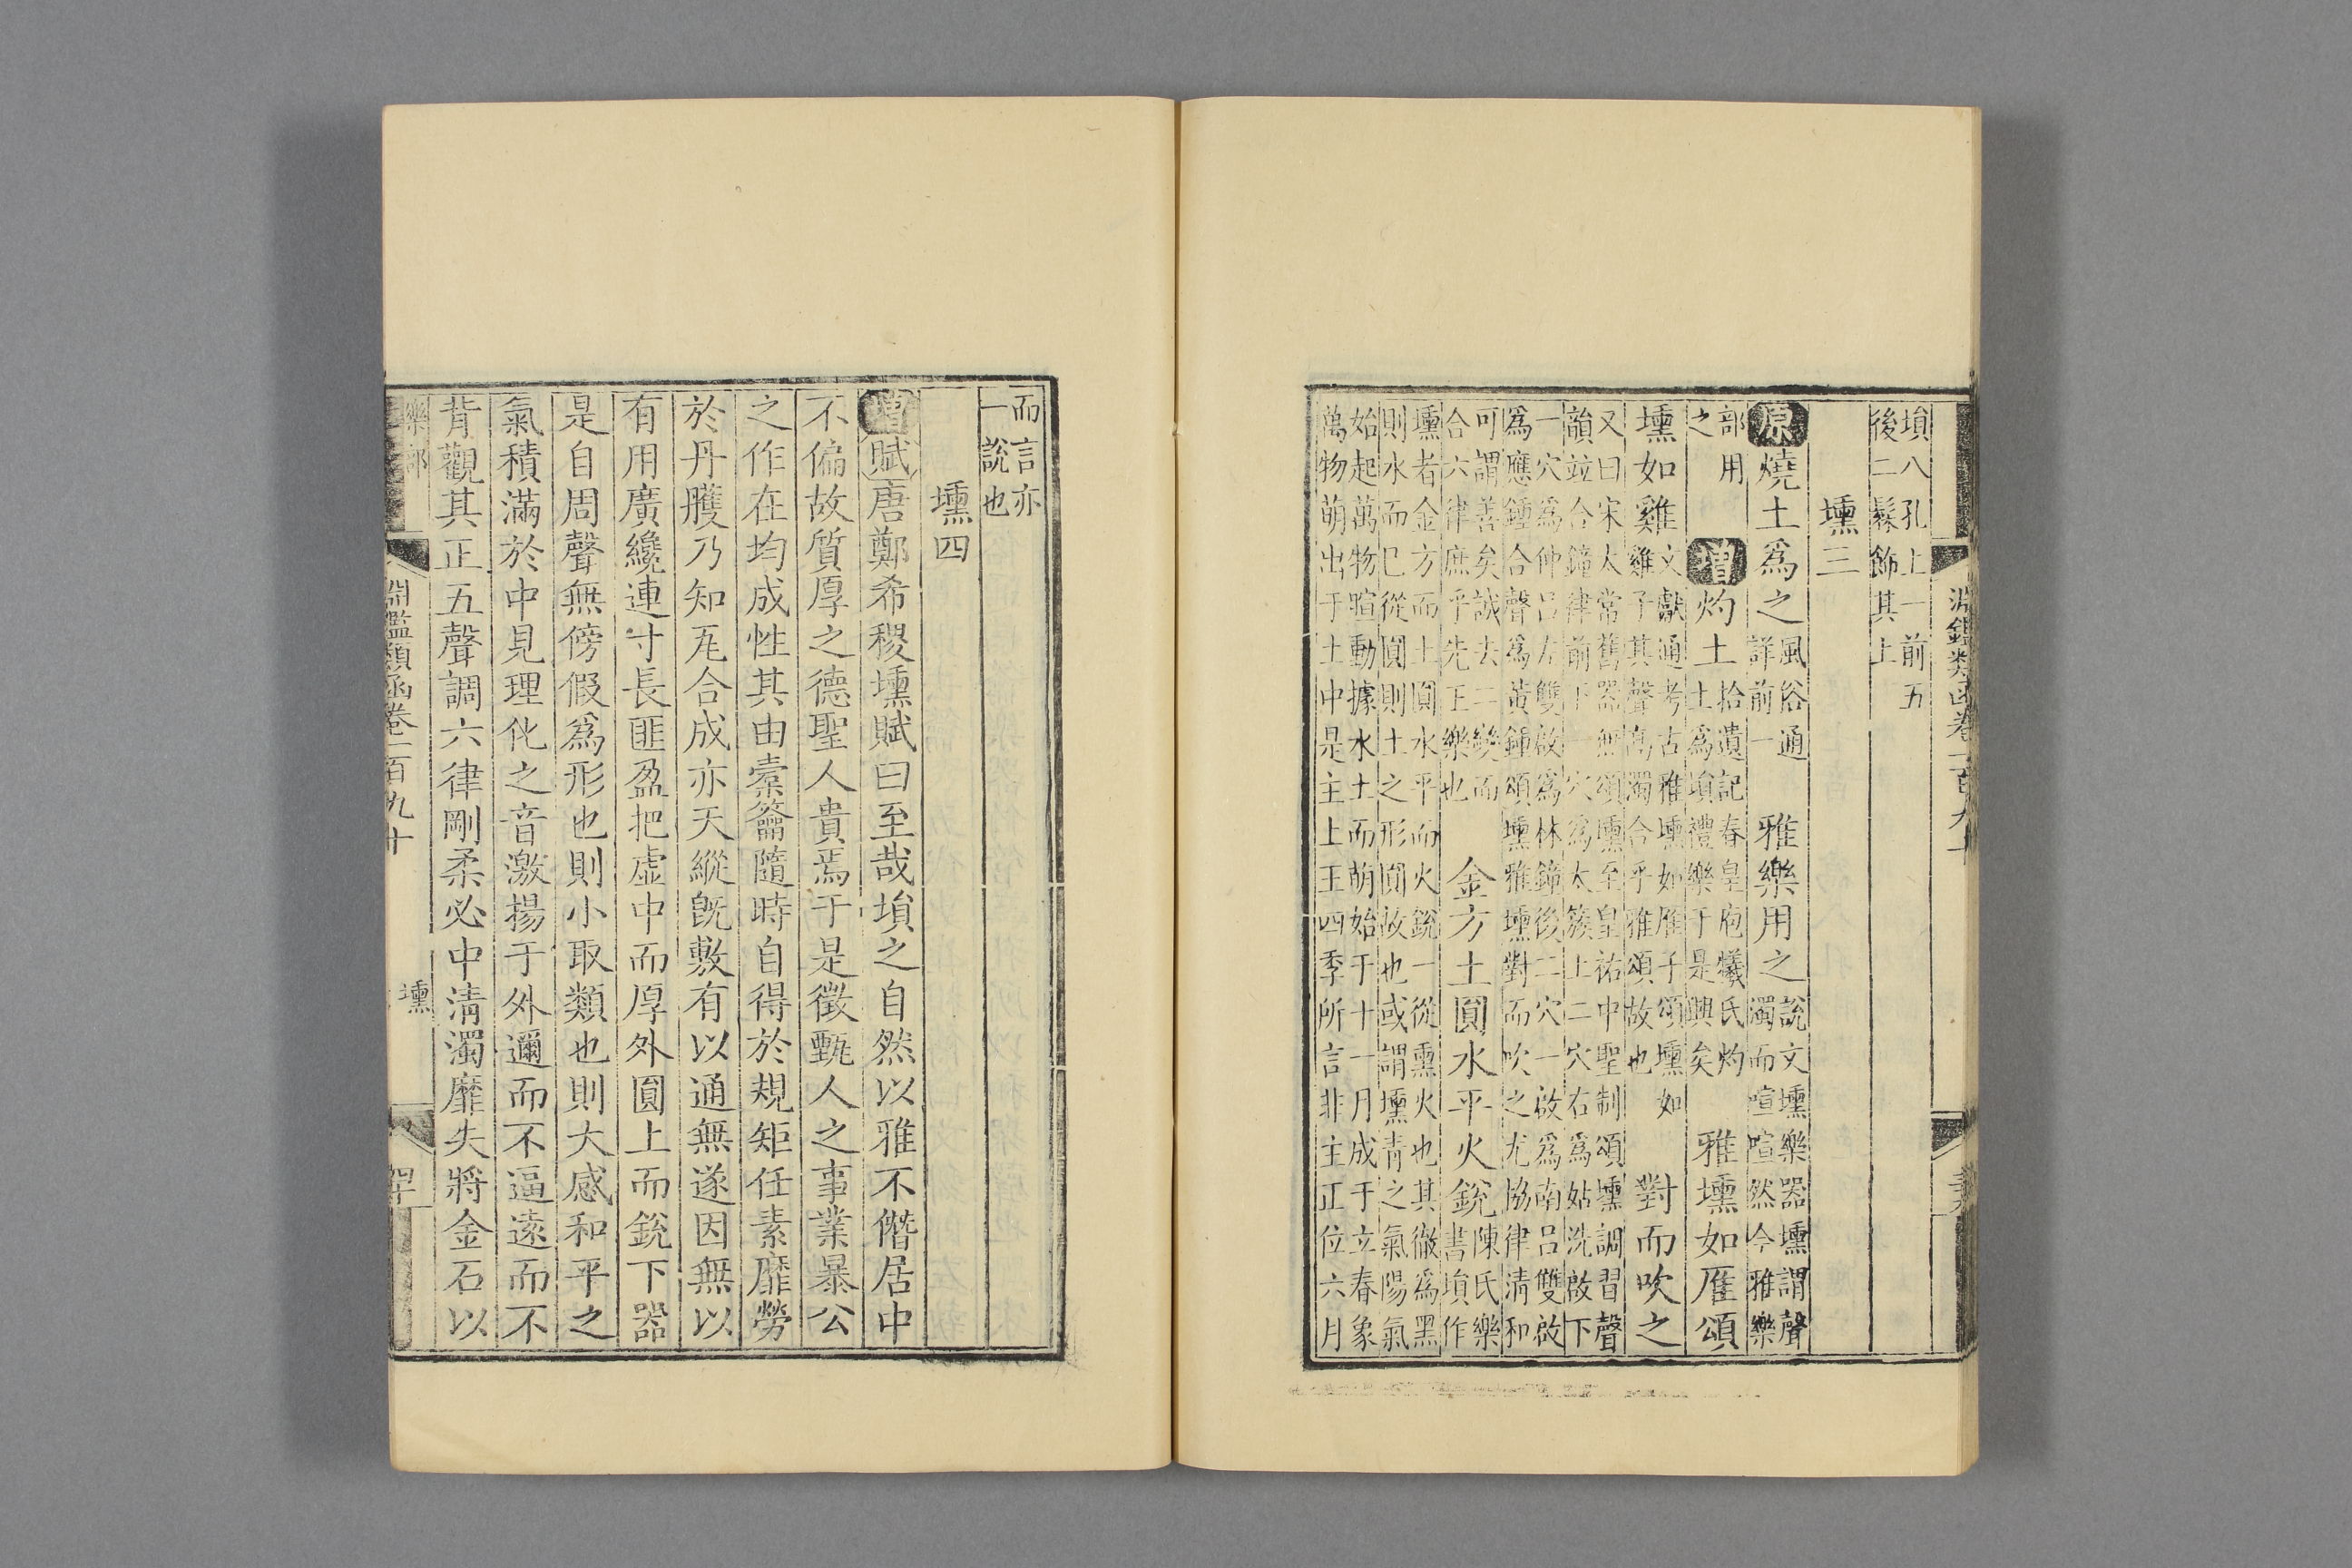 淵鑑類函卷一百九十
塤八孔上一前五後二鬆飾其上
壎三
原燒土爲之風俗通詳前一雅樂用之說文壎樂器壎謂聲濁而喧喧然今雅樂
部用之增灼土拾遺記春皇庖犧氏灼土爲塤禮樂于是興矣雅壎如雁頌
壎如雞文獻通考古雅壎如雁子頌壎如雞子其聲高濁合乎雅頌故也對而吹之
又曰宋太常舊器無頌壎至皇祐中聖制頌壎調習聲韻竝合鐘律前下一穴爲太簇上二穴右爲姑洗啟下
一穴爲仲呂左雙啟爲林鐘後二穴一啟爲南呂雙啟爲應鍾合聲爲黃鍾頌壎雅壎對而吹之尤協律清和
可謂善矣誠去二變而合六律庶乎先王樂也金方土圓水平火銳陳氏樂書塤作
壎者金方而土圓水平而火銳一從熏火也其徹爲黑則水而已從圓則土之形圓故也或謂壎青之氣陽氣
始起萬物暄動據水土而萌始于十一月成于立春象萬物萌出于土中是主上王四季所言非主正位六月
而言亦一說也
壎四
增賦唐鄭希稷壎賦曰至哉塤之自然以雅不僭居中
不偏故質厚之德聖人貴焉于是徵甄人之事業暴公
之作在均成性其由橐籥隨時自得於規矩任素靡勞
於丹雘乃知瓦合成亦天縱旣敷有以通無遂因無以
有用廣纔連寸長匪盈把虛中而厚外圓上而銳下器
是自周聲無傍假爲形也則小取類也則大感和平之
氣積滿於中見理化之音激揚于外邇而不逼遠而不
背觀其正五聲調六律剛柔必中清濁靡失將金石以
樂部
淵鑑類函卷一百九十
壎